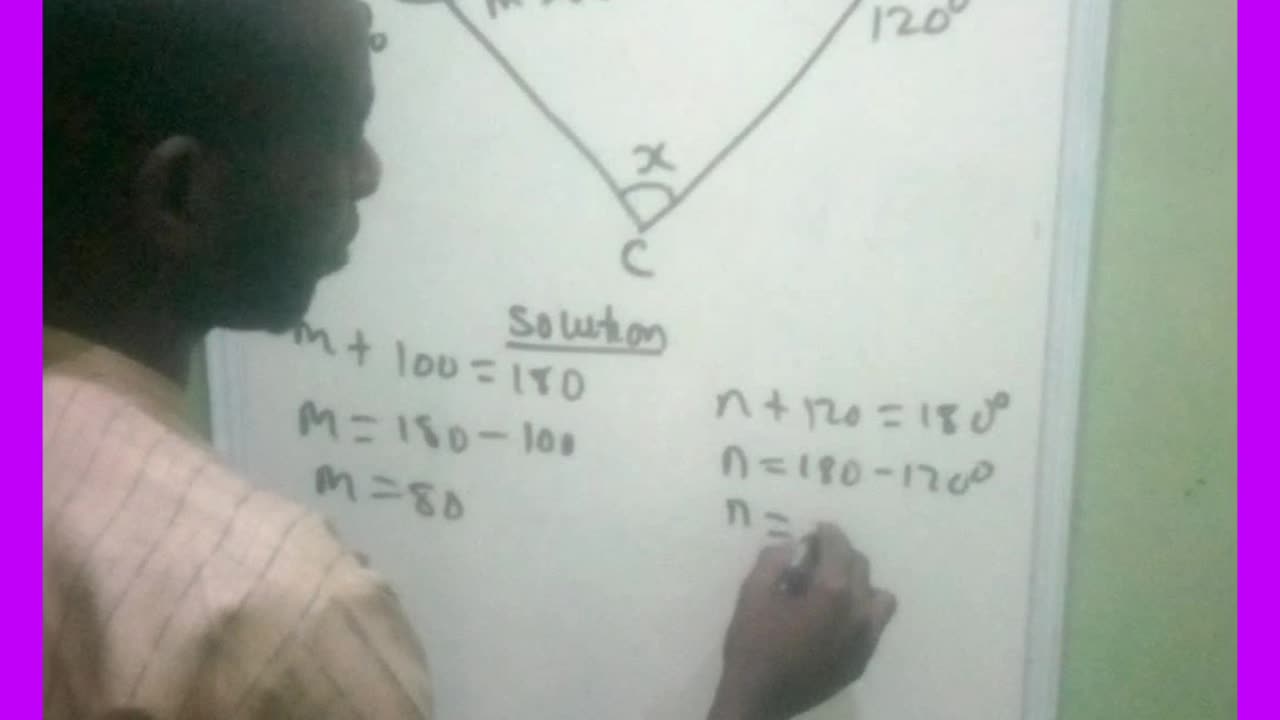 120°
x
C
Solution
m + 100 = 180
m = 180 - 100
m = 80
n + 120 = 180°
n = 180 - 120°
n =